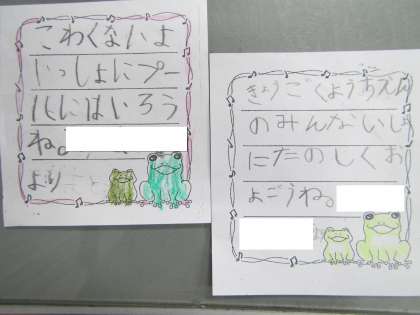 こわくないよ
いっしょにプー
ルにはいろう
ね。
より
きょうごくようちえん
のみんないっし
にたのしくお
よごうね。